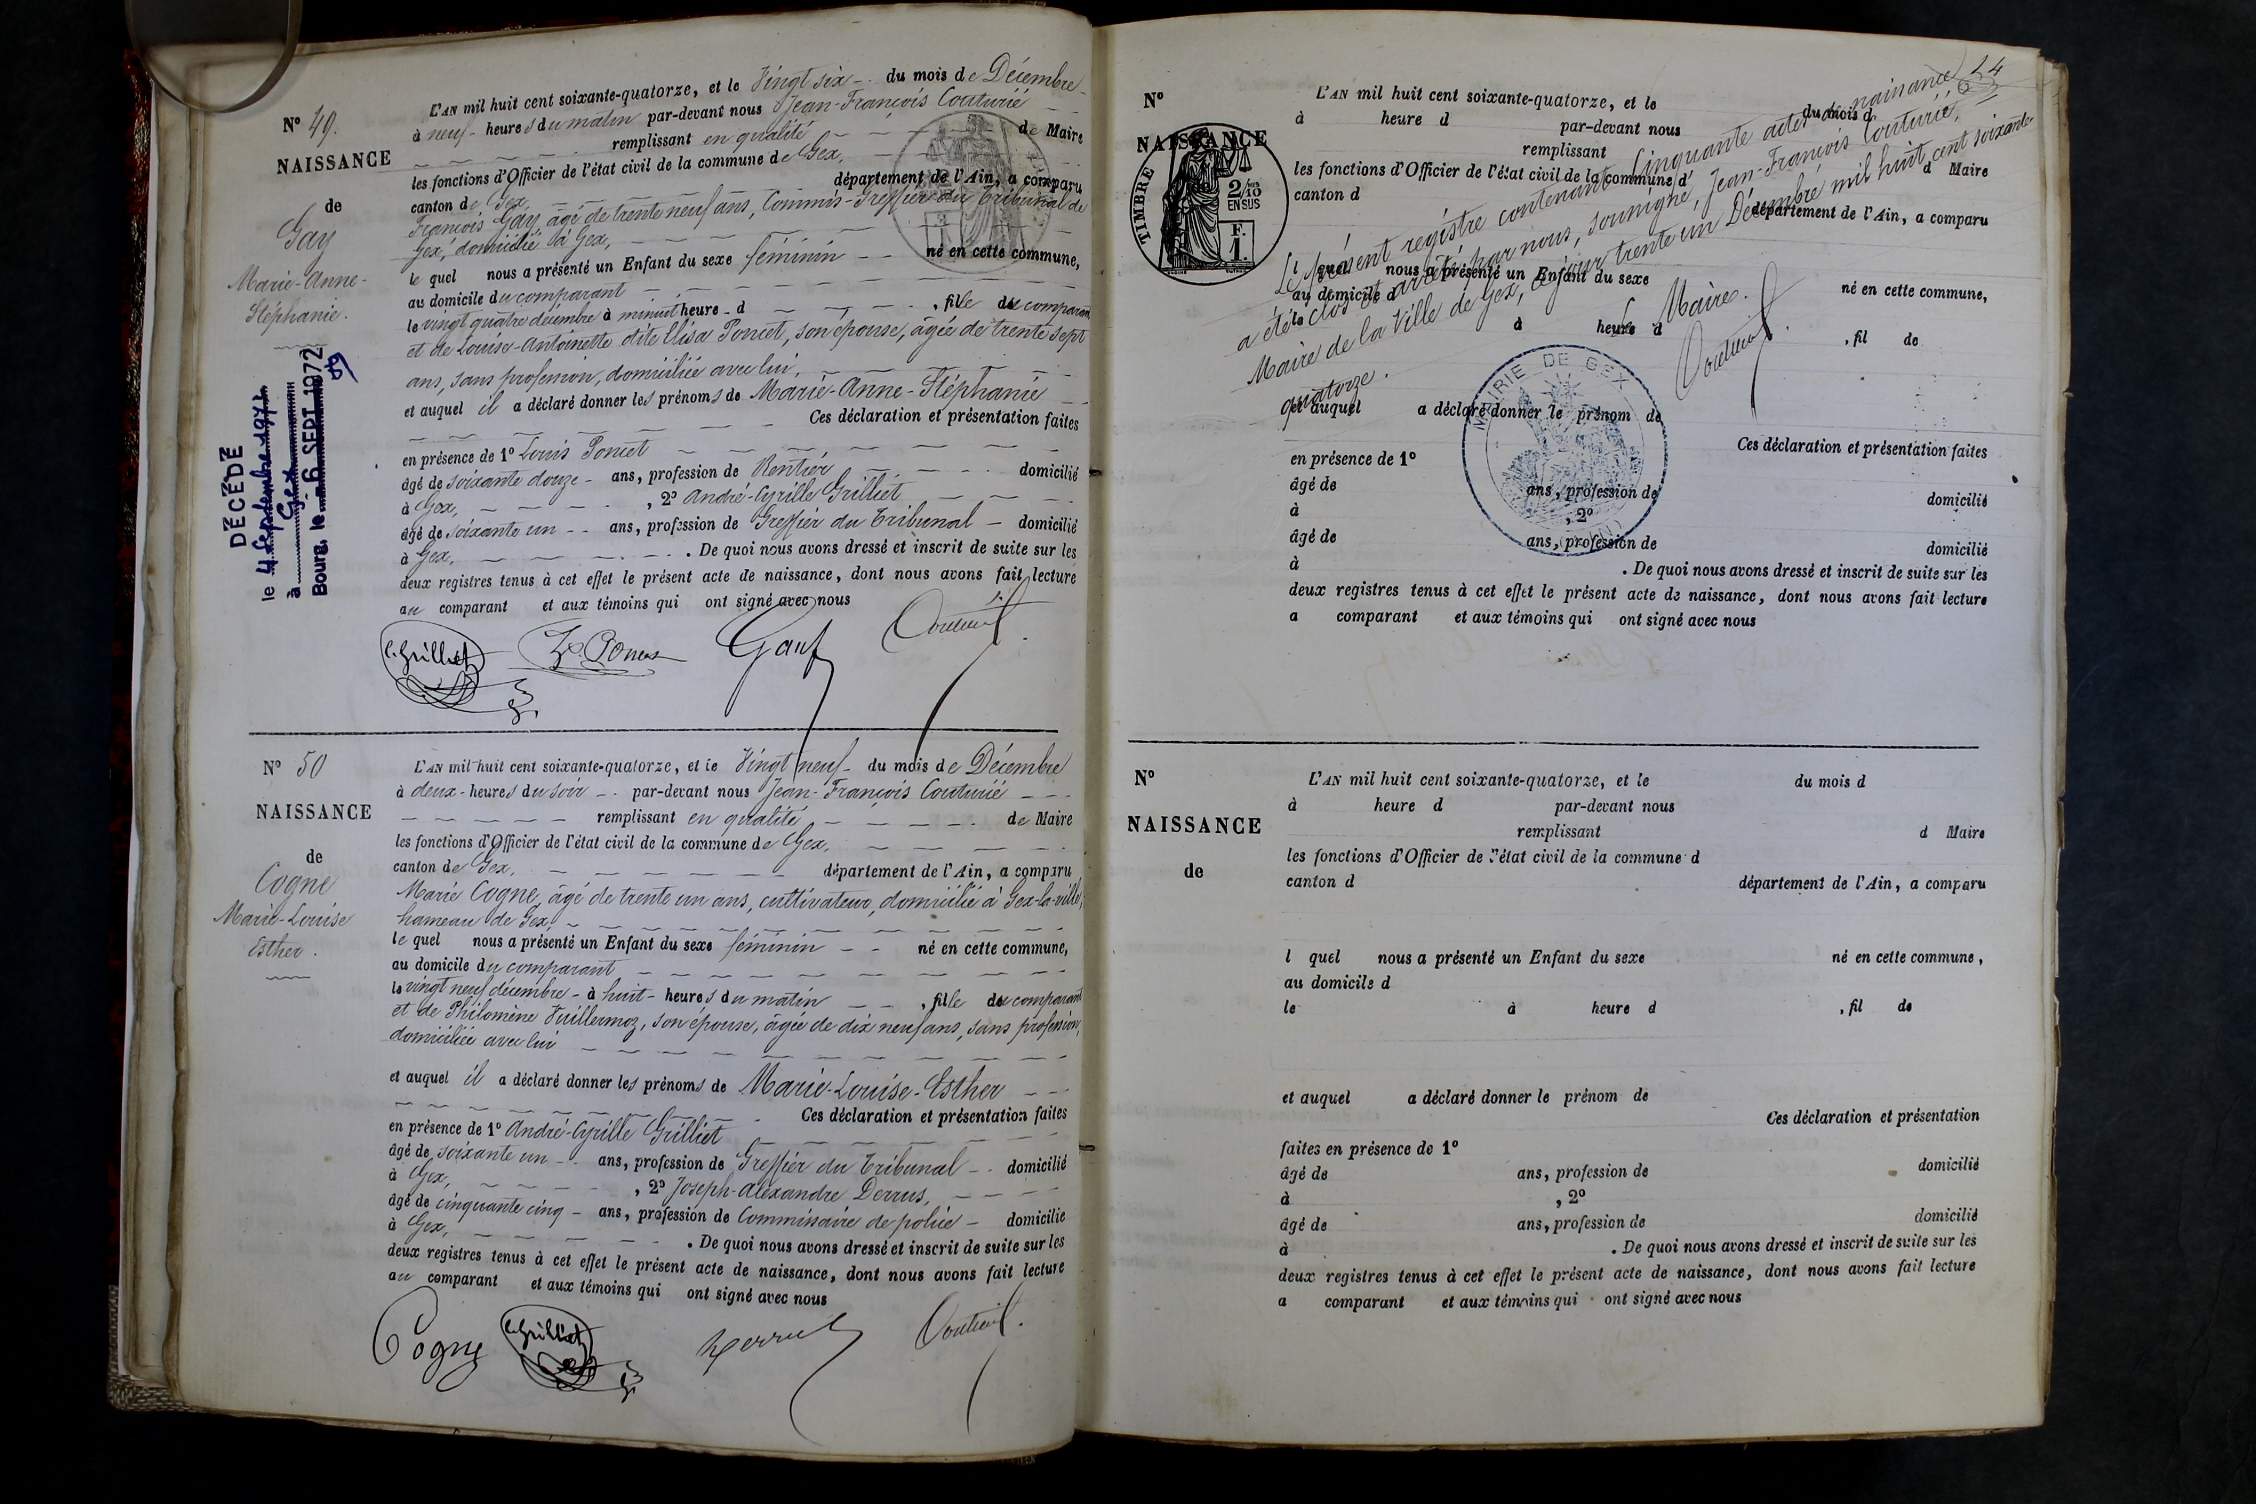 L'AN mil huit cent soixante-quatorze, et le Vingt six du mois de Décembre
à neuf heures du matin par-devant nous Jean-François Couturié
remplissant en qualité de Maire
les fonctions d'Officier de l'état civil de la commune de Gex,
canton de Gex, département de l'Ain, a comparu
François Gay, âgé de trente neuf ans, Commis-Greffier du Tribunal de
Gex, domicilié à Gex,
le quel nous a présenté un Enfant du sexe féminin né en cette commune,
au domicile du comparant
le vingt quatre décembre à minuit heure d , fille du comparant
et de Louise-Antoinette dite Elisa Poncet, son épouse, âgée de trente sept
ans, sans profession, domiciliée avec lui,
et auquel il a déclaré donner les prénoms de Marie-Anne-Stéphanie
Ces déclaration et présentation faites
en présence de 1º Louis Poncet
âgé de soixante douze ans, profession de Rentier domicilié
à Gex, , 2º André-Cyrille Grilliet
âgé de soixante un ans, profession de Greffier du Tribunal domicilié
à Gex, . De quoi nous avons dressé et inscrit de suite sur les
deux registres tenus à cet effet le présent acte de naissance, dont nous avons fait lecture
au comparant et aux témoins qui ont signé avec nous
C. Grilliet Poncet Gay Couturié
Nº 49.
NAISSANCE
de
Gay
Marie-Anne-
Stéphanie.
DÉCÉDÉ
le 4 septembre 1972
à Gex
Bourg, le 6 SEPT. 1972
Nº 50
NAISSANCE
de
Cogne
Marie-Louise
Esther.
L'AN mil huit cent soixante-quatorze, et le Vingt neuf du mois de Décembre
à deux heures du soir par-devant nous Jean-François Couturié
remplissant en qualité de Maire
les fonctions d'Officier de l'état civil de la commune de Gex,
canton de Gex, département de l'Ain, a comparu
Marie Cogne, âgé de trente un ans, cultivateur, domicilié à Gex-la-ville,
hameau de Gex,
le quel nous a présenté un Enfant du sexe féminin né en cette commune,
au domicile du comparant
le vingt neuf décembre à huit heures du matin , fille du comparant
et de Philomène Vuillermoz, son épouse, âgée de dix neuf ans, sans profession,
domiciliée avec lui
et auquel il a déclaré donner les prénoms de Marie-Louise-Esther
Ces déclaration et présentation faites
en présence de 1º André-Cyrille Grilliet
âgé de soixante un ans, profession de Greffier du Tribunal domicilié
à Gex, , 2º Joseph-Alexandre Derrus,
âgé de cinquante cinq ans, profession de Commissaire de police domicilié
à Gex, . De quoi nous avons dressé et inscrit de suite sur les
deux registres tenus à cet effet le présent acte de naissance, dont nous avons fait lecture
au comparant et aux témoins qui ont signé avec nous
Cogne C. Grilliet Derrus Couturié
14
Nº
NAISSANCE
TIMBRE
2/10
EN SUS
F.
1.
L'AN mil huit cent soixante-quatorze, et le du mois d
à heure d par-devant nous
remplissant d Maire
les fonctions d'Officier de l'état civil de la commune d
canton d département de l'Ain, a comparu
l quel nous a présenté un Enfant du sexe né en cette commune,
au domicile d
le à heure d , fil de
et auquel a déclaré donner le prénom de
Ces déclaration et présentation faites
en présence de 1º
âgé de ans, profession de domicilié
à , 2º
âgé de ans, profession de domicilié
à . De quoi nous avons dressé et inscrit de suite sur les
deux registres tenus à cet effet le présent acte de naissance, dont nous avons fait lecture
a comparant et aux témoins qui ont signé avec nous
Le présent registre contenant Cinquante actes de naissance
a été clos et arrêté par nous, soussigné, Jean-François Couturié,
Maire de la Ville de Gex, ce jour trente un Décembre mil huit cent soixante
quatorze.
Le Maire.
Couturié
MAIRIE DE GEX
Nº
NAISSANCE
de
L'AN mil huit cent soixante-quatorze, et le du mois d
à heure d par-devant nous
remplissant d Maire
les fonctions d'Officier de l'état civil de la commune d
canton d département de l'Ain, a comparu
l quel nous a présenté un Enfant du sexe né en cette commune,
au domicile d
le à heure d , fil de
et auquel a déclaré donner le prénom de
Ces déclaration et présentation
faites en présence de 1º
âgé de ans, profession de domicilié
à , 2º
âgé de ans, profession de domicilié
à . De quoi nous avons dressé et inscrit de suite sur les
deux registres tenus à cet effet le présent acte de naissance, dont nous avons fait lecture
a comparant et aux témoins qui ont signé avec nous